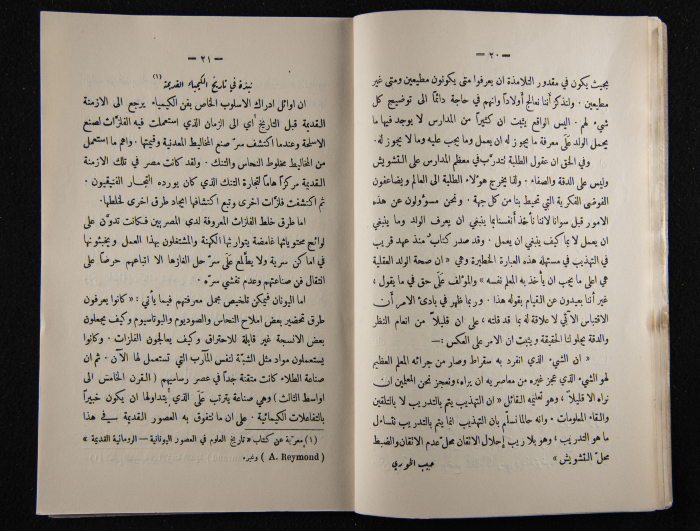 — ٢٠ —
بحيث يكون في مقدور التلامذة ان يعرفوا متى يكونون مطيعين ومتى غير
مطيعين . ولنذكر أننا نعالج أولاداً وانهم في حاجة دائماً الى توضيح كل
شيء لهم . اليس الواقع يثبت ان كثيراً من المدارس لا يوجد فيها ما
يحمل الولد على معرفة ما يجوز له ان يعمل وما يجب عليه وما لا يجوز له .
وفي الحق ان عقول الطلبة لتدرَّب في معظم المدارس على التشويش
وليس على الدقة والصفاء . ولذا يخرج هؤلاء الطلبة الى العالم ويضاعفون
الفوضى الفكرية التي تحيط بنا من كل جهة . ونحن مسؤولون عن هذه
الامور قبل سوانا لاننا نأخذ أنفسنا بما ينبغي ان يعرف الولد وما ينبغي
ان يعمل لا بما كيف ينبغي ان يعمل . وقد صدر كتاب منذ عهد قريب
في التهذيب في مستهله هذه العبارة الخطيرة وهي « ان صحة الولد العقلية
هي اعلى ما يجب ان يأخذ به المعلم نفسه » والمؤلف على حق في ما يقول ،
غير أننا بعيدون عن القيام بقوله هذا . وربما ظهر في بادئ الامر أن
الاقتباس الآتي لا علاقة له بما قد قلته ، على ان قليلاً من انعام النظر
والدقة يجلو لنا الحقيقة ويثبت ان الامر على العكس :—
« ان الشيء الذي انفرد به سقراط وصار من جرائه المعلم العظيم
لهو الشيء الذي عجز غيره من معاصريه ان يراه، ونعجز نحن المعلمين ان
نراه الا قليلاً ، وهو تعليمه القائل « ان التهذيب يتم بالتدريب لا بالتلقين
والقاء المعلومات . وانه حالما نسلّم بأن التهذيب انما يتم بالتدريب نتساءل
ما هو التدريب ، وهو بلا ريب إحلال الاتقان محل عدم الاتقان والضبط
محل التشويش »
حبيب الخوري
— ٢١ —
نبذة في تاريخ الكيمياء القديمة (١)
ان اوائل ادراك الاسلوب الخاص بفن الكيمياء يرجع الى الازمنة
القديمة قبل التاريخ أي الى الزمان الذي استعملت فيه الفلزّات لصنع
الاسلحة وعندما اكتشف سرّ صنع المخاليط المعدنية وقيمتها . واهم ما استعمل
من المخاليط مخلوط النحاس والتنك . ولقد كانت مصر في تلك الازمنة
القديمة مركزاً هاماً لتجارة التنك الذي كان يورده التجار الفنيقيون .
ثم اكتشفت فلزّات اخرى وتبع اكتشافها ايجاد طرق اخرى لخلطها.
اما طرق خلط الفلزات المعروفة لدى المصريين فكانت تدوَّن على
لوائح محتوياتها غامضة يتوارثها الكهنة والمشتغلون بهذا العمل ويخبئونها
في اماكن سرية ولا يطَّلع على سرّ حل الغازها الا اتباعهم حرصاً على
انتقال فن صناعتهم وعدم تفشي سرّه .
اما اليونان فيمكن تلخيص مجمل معرفتهم فيما يأتي : « كانوا يعرفون
طرق تحضير بعض املاح النحاس والصوديوم والبوتاسيوم وكيف يجعلون
بعض الانسجة غير قابلة للاحتراق وكيف يعالجون الفلزات . وكانوا
يستعملون مواد مثل الشبّة لنفس المآرب التي تستعمل لها الآن . ثم ان
صناعة الطلاء كانت متقنة جداً في عصر رساميهم ( القرن الخامس الى
اواسط الثالث ) وهي صناعة يترتب على الذي يتداولها ان يكون خبيراً
بالتفاعلات الكيمائية . على ان ما تتفوق به العصور القديمة في هذا
(١) معرّبة عن كتاب « تاريخ العلوم في العصور اليونانية – الرومانية القديمة »
( A. Reymond ) وغيره.